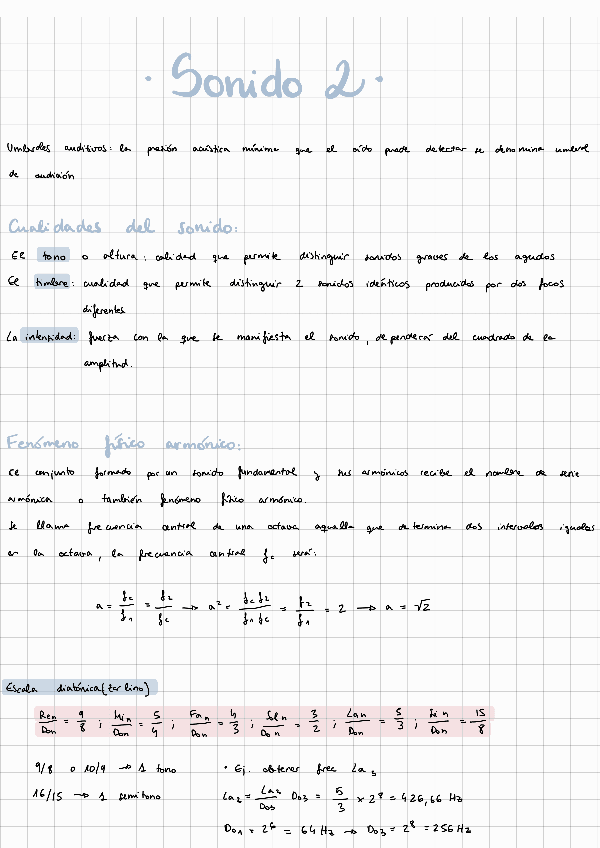 · Sonido 2 ·
Umbrales auditivos: la presión acústica mínima que el oído puede detectar se denomina umbral
de audición
Cualidades del sonido:
El tono o altura: calidad que permite distinguir sonidos graves de los agudos
El timbre: cualidad que permite distinguir 2 sonidos idénticos producidos por dos focos
diferentes
La intensidad: fuerza con la que se manifiesta el sonido, dependerá del cuadrado de la
amplitud.
Fenómeno físico armónico:
El conjunto formado por un sonido fundamental y sus armónicos recibe el nombre de serie
armónica o también fenómeno físico armónico.
Se llama frecuencia central de una octava aquella que determina dos intervalos iguales
en la octava, la frecuencia central fc será:
a = fc/f1 = f2/fc → a² = fc f2/f1 fc = f2/f1 = 2 → a = √2
Escala diatónica (zarlino)
Ren/Don = 9/8 ; Min/Don = 5/4 ; Fan/Don = 4/3 ; Soln/Don = 3/2 ; Lan/Don = 5/3 ; Sin/Don = 15/8
9/8 o 10/9 → 1 tono
16/15 → 1 semitono
· Ej. obtener frec La3
La3 = La3/Do3 Do3 = 5/3 × 2⁸ = 426,66 Hz
Do1 = 2⁶ = 64 Hz → Do3 = 2⁸ = 256 Hz